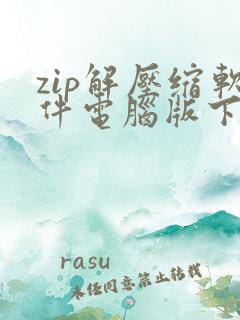 zip解壓縮軟
件電腦版下
rasu
未经同意禁止转载